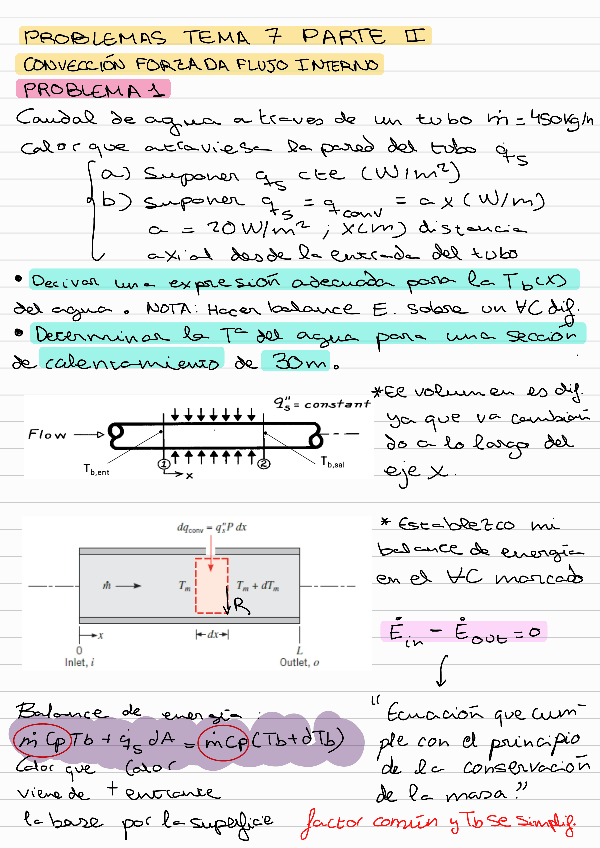 PROBLEMAS TEMA 7 PARTE II
CONVECCIÓN FORZADA FLUJO INTERNO
PROBLEMA 1
Caudal de agua a traves de un tubo ṁ = 450 kg/h
Calor que atraviesa la pared del tubo q̇s
a) Suponer q̇s cte (W/m²)
b) Suponer q̇s = q̇conv = a x (W/m)
a = 20 W/m² ; x(m) distancia
axial desde la entrada del tubo
• Derivar una expresión adecuada para la Tb(x)
del agua. NOTA: Hacer balance E. sobre un ∀C dif.
• Determinar la Tª del agua para una sección
de calentamiento de 30m.
q''s = constant
Flow
Tb,ent
1
x
2
Tb,sal
*El volumen es dif.
ya que va cambian
do a lo largo del
eje x.
dqconv = q''s P dx
ṁ
Tm
Tm + dTm
R
x
dx
0
L
Inlet, i
Outlet, o
* Establezco mi
balance de energía
en el ∀C marcado
Ėin - Ėout = 0
Balance de energía:
ṁ Cp Tb + q̇s dA = ṁ Cp (Tb + dTb)
Calor que Calor
viene de + entrante
la base por la superficie
"Ecuación que cum-
ple con el principio
de la conservación
de la masa"
factor común y Tb se simplif.